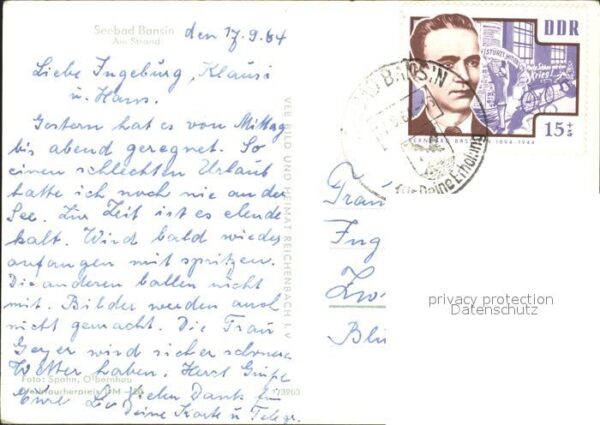 Seebad Bansin
Am Strand
den 17.9.64
Liebe Ingeburg, Klausi
u. Hans.
Gestern hat es von Mittag
bis abend geregnet. So
einen schlechten Urlaub
hatte ich noch nie an der
See. Zur Zeit ist es elende
kalt. Wird bald wieder
anfangen mit spritzen.
Die anderen ballen nicht
mit. Bilder werden auch
nicht gemacht. Die Frau
Geyer wird sicher schönere
Wetter haben. Herzl Grüße
Eure
Vielen Dank für
Deine Karte u Telegr.
Foto: Spahn, Olbernhau
VEB BILD UND HEIMAT REICHENBACH I. V.
DDR
15+5
1894-1944
BANSIN
für Deine Erholung
Frau
Ing
Zw
privacy protection
Datenschutz